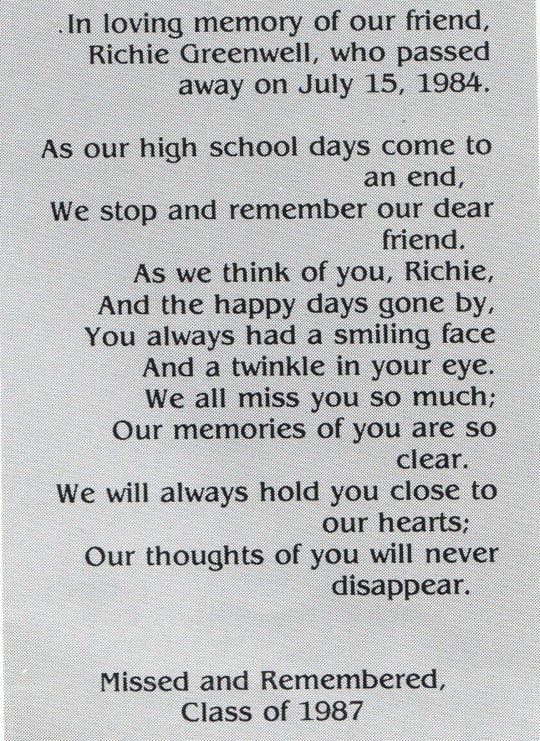 .In loving memory of our friend,
Richie Greenwell, who passed
away on July 15, 1984.
As our high school days come to
an end,
We stop and remember our dear
friend.
As we think of you, Richie,
And the happy days gone by,
You always had a smiling face
And a twinkle in your eye.
We all miss you so much;
Our memories of you are so
clear.
We will always hold you close to
our hearts;
Our thoughts of you will never
disappear.
Missed and Remembered,
Class of 1987